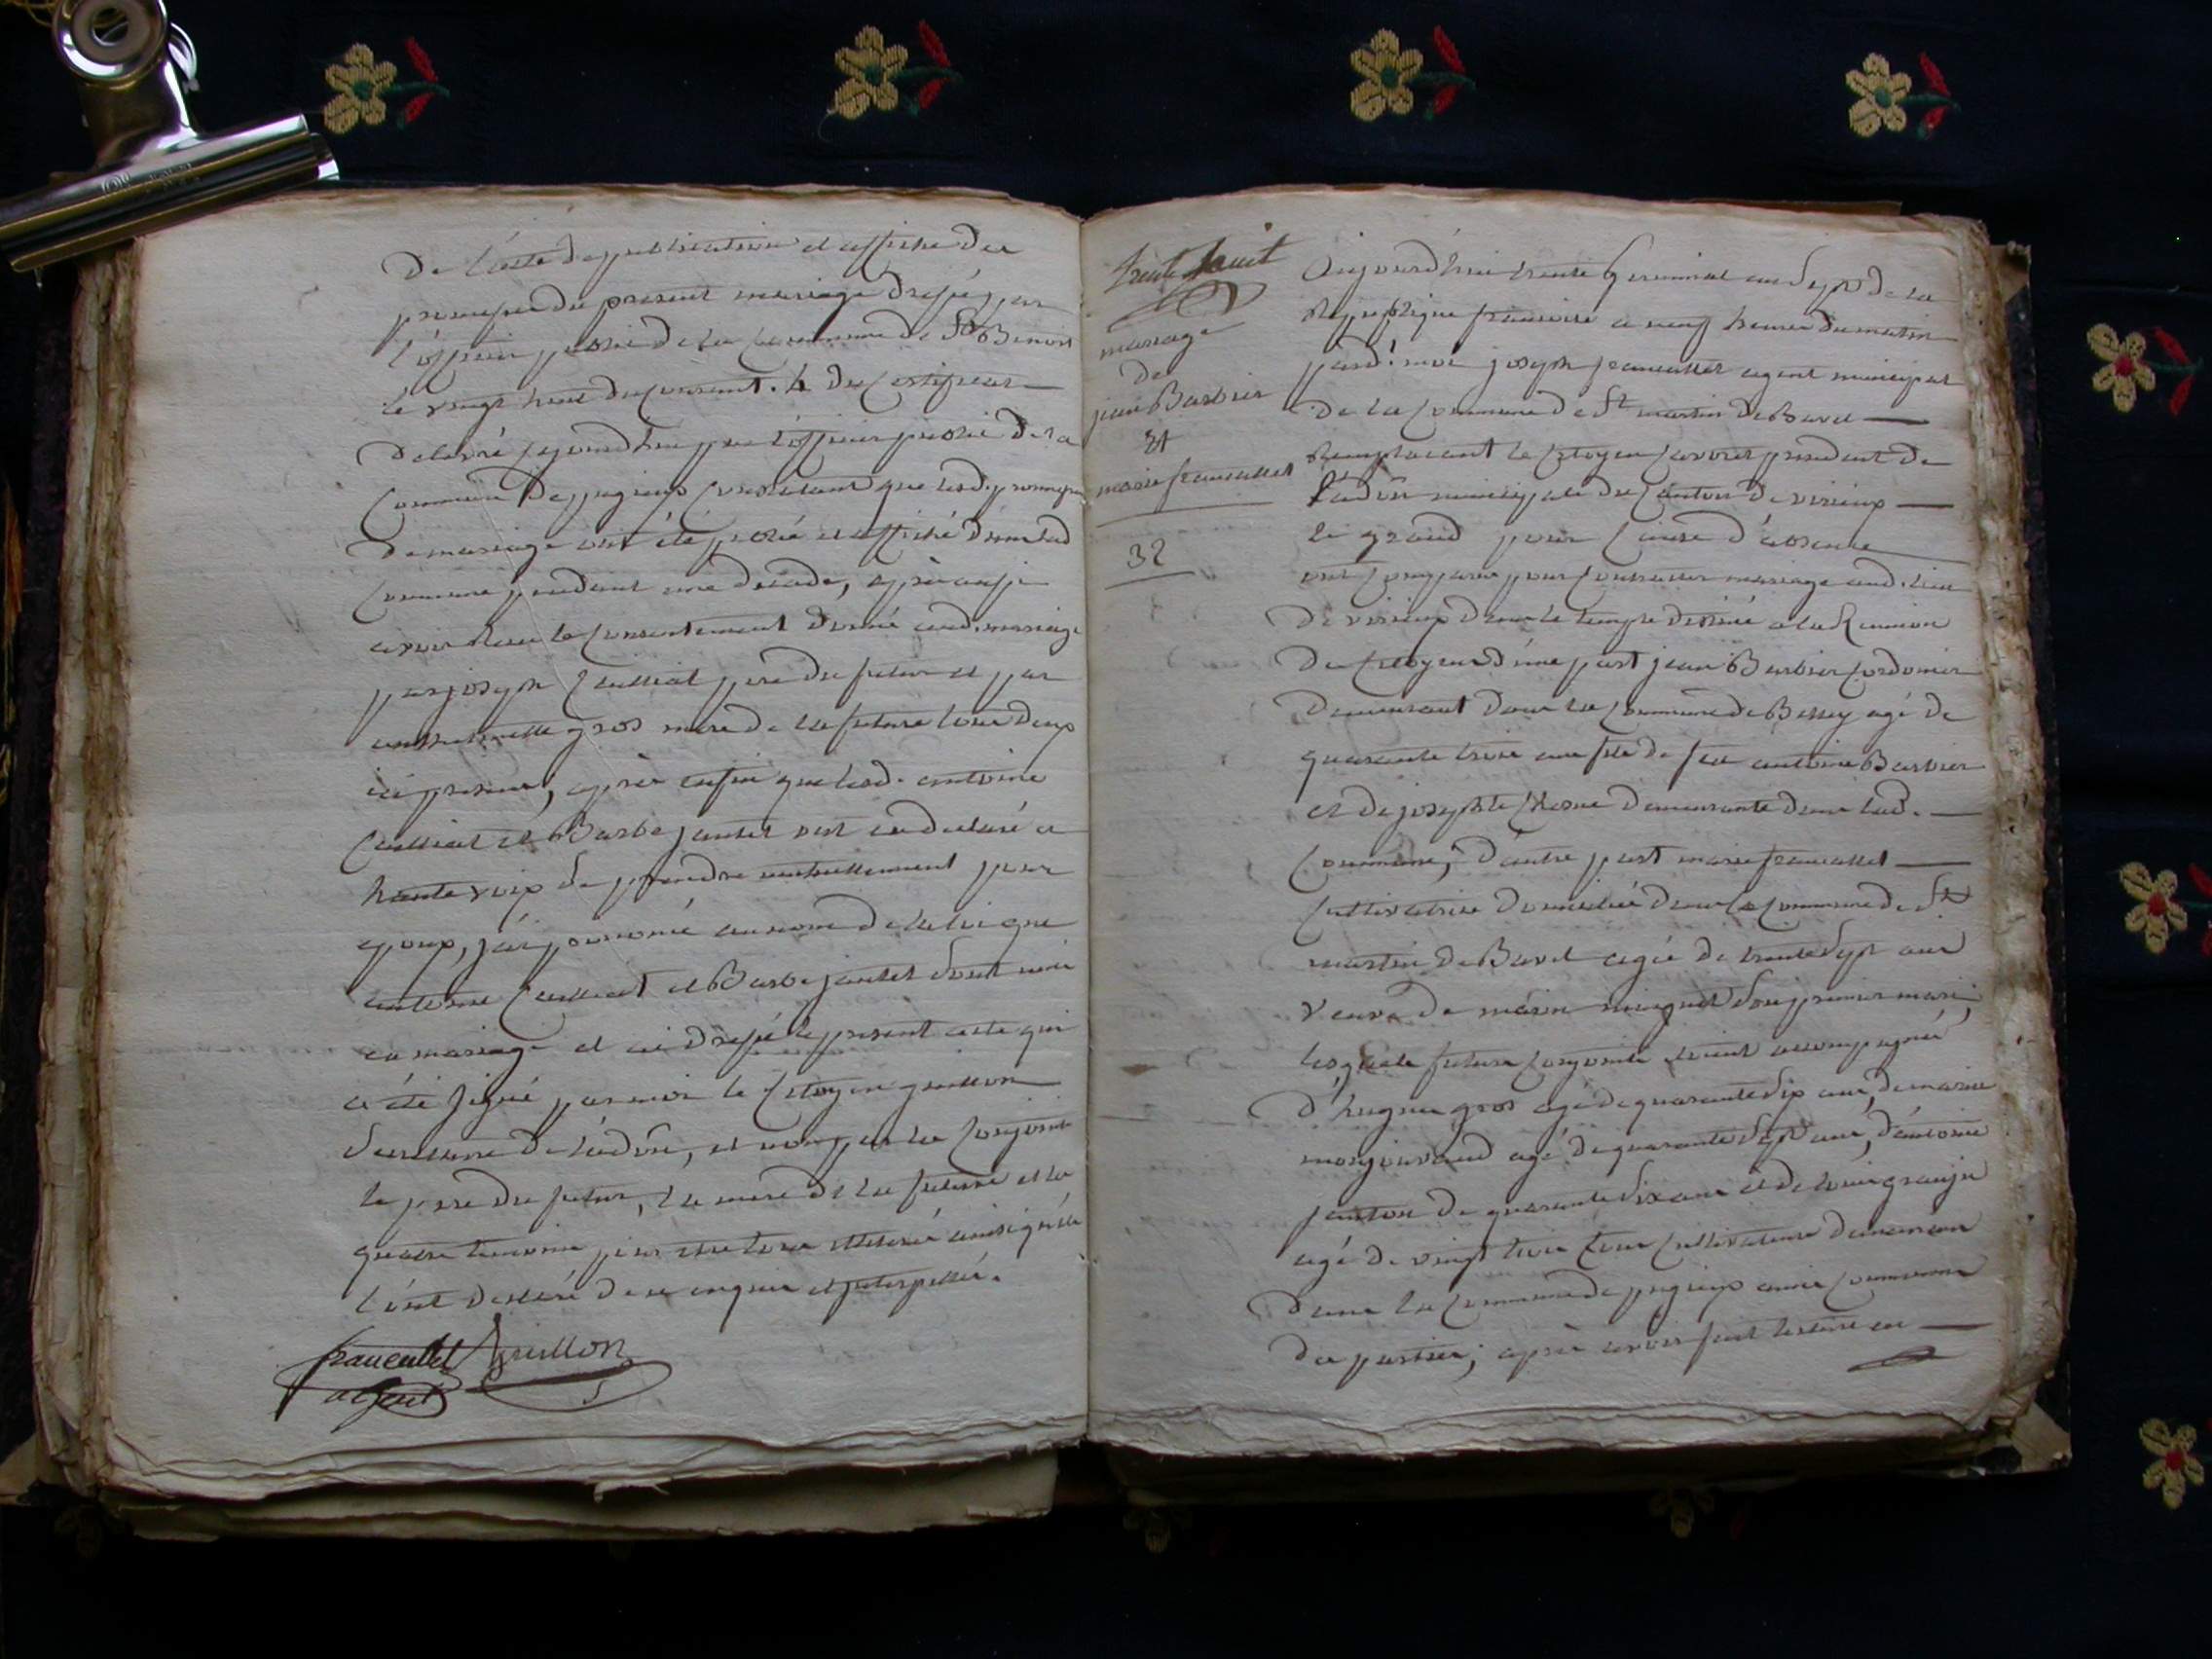 De l'acte de publication et affiche des
promesses du present mariage dressé par
l'officier public de la commune de St Benoit
le vingt huit du courant. 4 du certificat
delivré cejourdhui par l'officier public de la
commune de pugieux constatant que lesd. promesses
de mariage ont été publié et affiché dans lad
commune pendant une decade, après aussi
avoir Reçu le consentement donné aud. mariage
par joseph Cailliat pere du futur et par
gros mere de la future tous deux
ici present, après enfin que lesd. antoine
Cailliat et Barbe jantet ont eu declaré a
haute voix se prendre mutuellement pour
epoux, j'ai prononcé au nom de la loi que
antoine Cailliat et Barbe jantet sont unis
en mariage et ai dressé le present acte qui
a été signé par moi le Citoyen guillon
secretaire de l'adon, et non par les conjoints
le pere du futur, la mere de la future et les
quatre temoins pour etre tous illiterés ainsi qu'ils
l'ont declaré de ce enquis et interpellés.
francallet guillon
agent
trente huit
mariage
de
jean Barbier
et
marie francallet
32
Aujourd'hui trente Germinal an Sept de la
Republique francoise a neuf heures du matin
pard. moi joseph francallet agent municipal
de la Commune de St martin de Bavel
Remplacant le Citoyen president de
l'adon municipale du Canton de virieux
le grand pour Cause d'absence
ont Comparu pour Contracter mariage aud. lieu
de virieux dans le temple destiné a la Reunion
des Citoyens d'une part jean Barbier Cordonier
demeurant dans la Commune de Belley agé de
quarante trois ans fils de feu antoine Barbier
et de josephte demeurante dans lad.
Commune, d'autre part marie francallet
Cultivatrice domiciliée dans la Commune de St
martin de Bavel agée de trente sept ans
veuve de marin son premier mari,
lesquels futurs conjoints etoient accompagnés
d'hugues gros agé de quarante six ans, de marin
monjouvaud agé de quarante sept ans, d'antoine
janton de quarante six ans et de louis grange
agé de vingt trois tous Cultivateurs demeurans
dans la Commune de pugieux amis Communs
des parties; après avoir fait lecture en